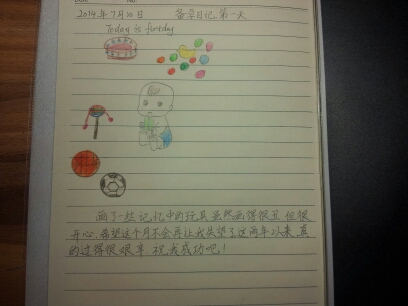 Date No.
2014年7月30日 备孕日记,第一天
Today is first day
画了一些记忆中的玩具虽然画得很丑 但很
开心.希望这个月不会再让我失望了这两年以来 真
的过得很艰辛 祝我成功吧!